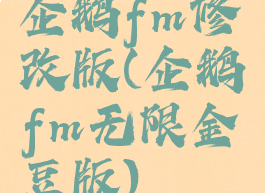 企鹅fm修
改版(企鹅
fm无限金
豆版)